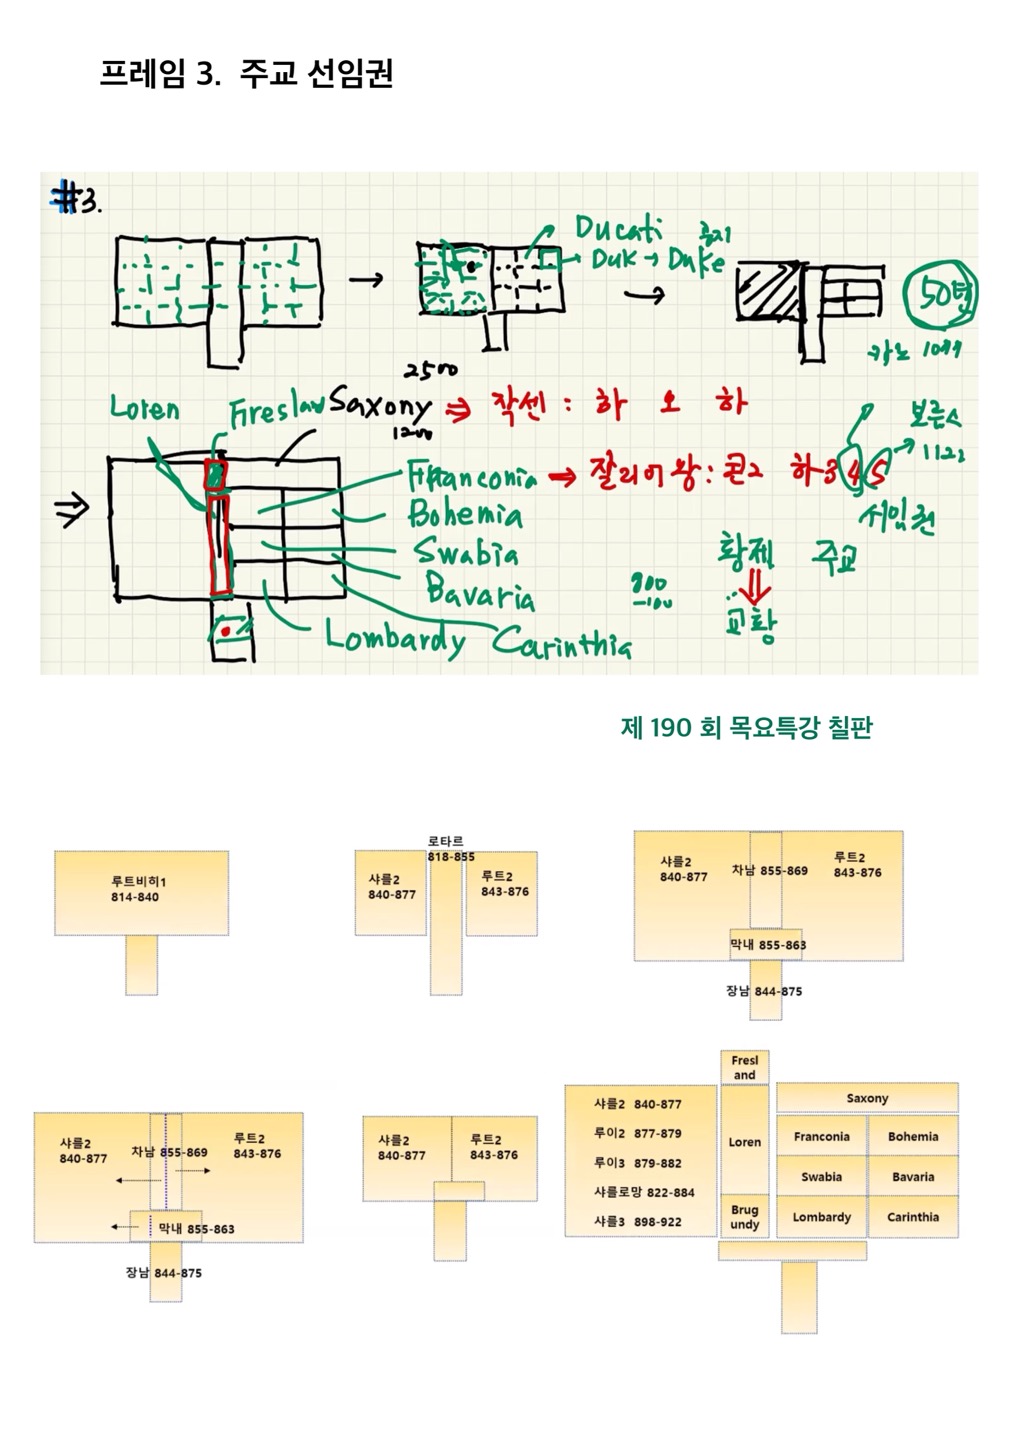 프레임 3. 주교 선임권
#3.
Ducati
Duk → Duke
50년
카노 1077
2500
Loren
Saxony ⇒ 작센 : 하 오 하
1200
보름스
1122
Franconia ⇒ 잘리어 왕 : 콘2 하3 4 5
서임권
Bohemia
Swabia
황제 주교
Bavaria
교황
Lombardy
Carinthia
제 190 회 목요특강 칠판
루트비히1
814-840
로타르
818-855
샤를2
840-877
루트2
843-876
샤를2
840-877
차남 855-869
루트2
843-876
막내 855-863
장남 844-875
샤를2
840-877
차남 855-869
루트2
843-876
막내 855-863
장남 844-875
샤를2
840-877
루트2
843-876
샤를2 840-877
루이2 877-879
루이3 879-882
샤를로망 822-884
샤를3 898-922
Fresl
and
Loren
Brug
undy
Saxony
Franconia
Bohemia
Swabia
Bavaria
Lombardy
Carinthia